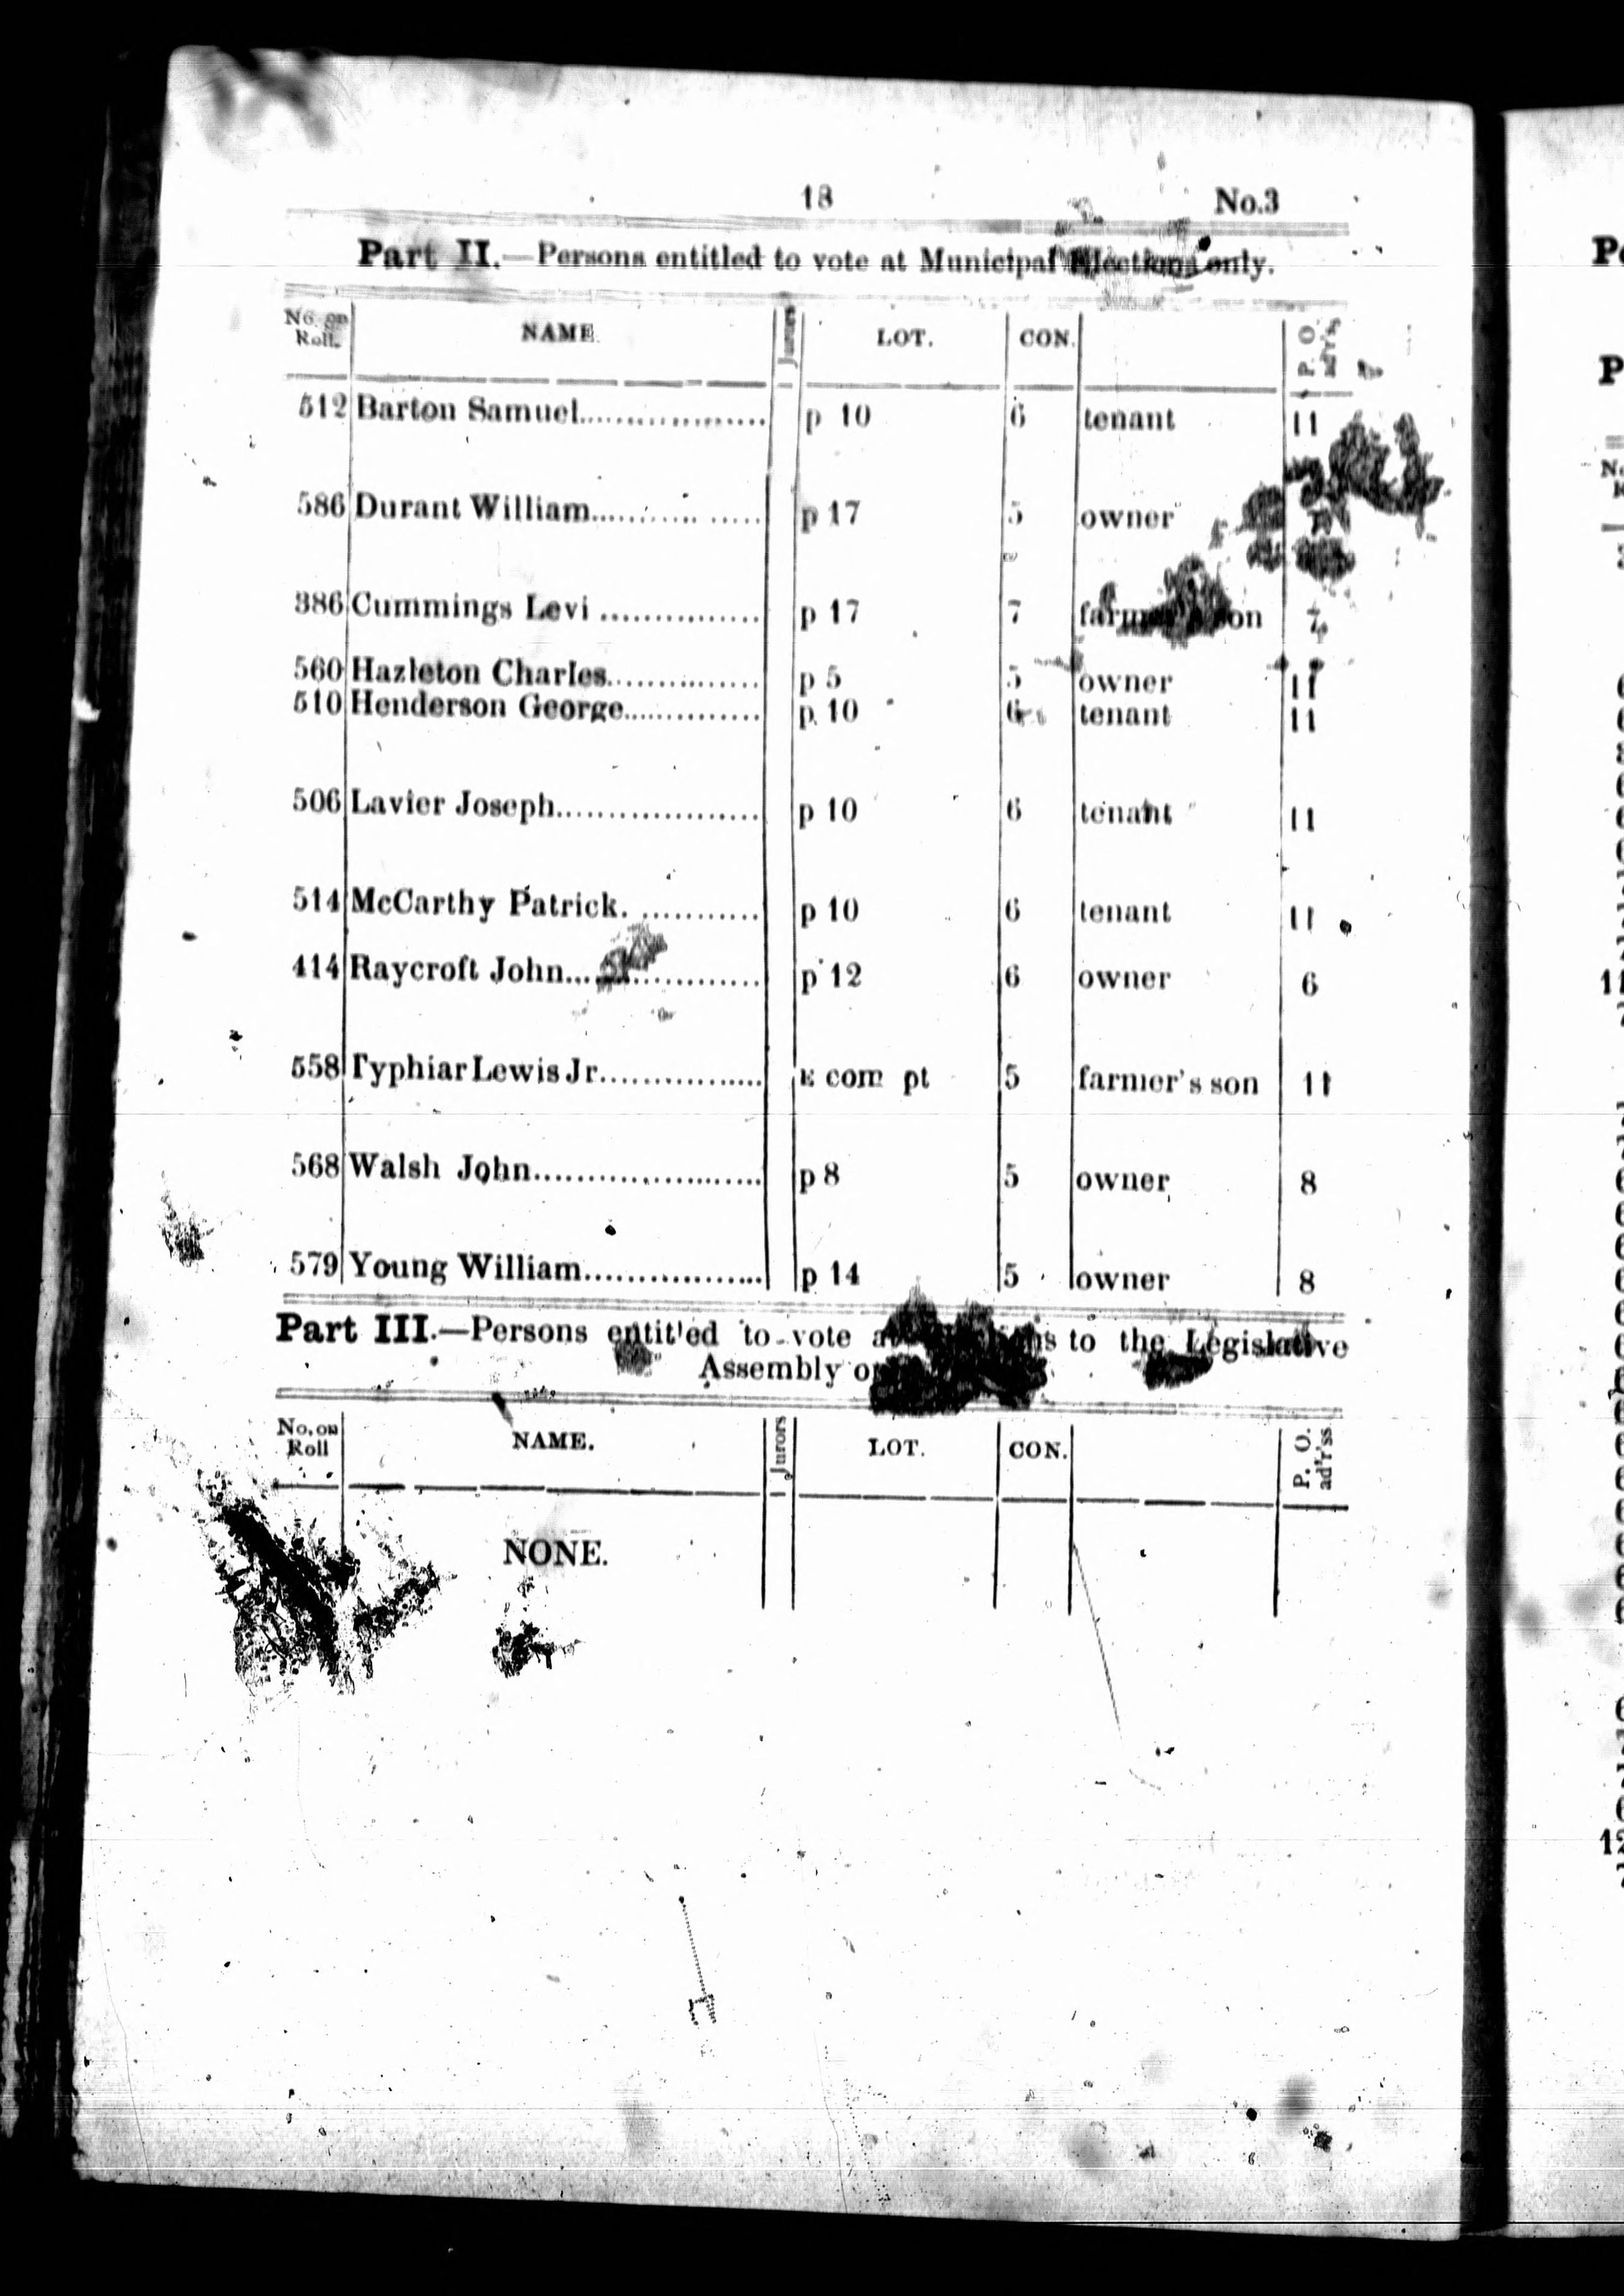 18 No.3
Part II.—Persons entitled to vote at Municipal Elections only.
No. on Roll. NAME. Jurors LOT. CON. P. O. ad'r's
512 Barton Samuel.................. p 10 6 tenant 11
586 Durant William................ p 17 5 owner
386 Cummings Levi ............... p 17 7 farmer's son 7
560 Hazleton Charles.............. p 5 5 owner 11
510 Henderson George............. p. 10 6 tenant 11
506 Lavier Joseph.................... p 10 6 tenant 11
514 McCarthy Patrick. ........... p 10 6 tenant 11
414 Raycroft John.................. p 12 6 owner 6
558 Typhiar Lewis Jr................ E com pt 5 farmer's son 11
568 Walsh John....................... p 8 5 owner 8
579 Young William.................. p 14 5 owner 8
Part III.—Persons entit'ed to vote to the Legislative
Assembly
No. on Roll NAME. Jurors LOT. CON. P. O. ad'r'ss
NONE.